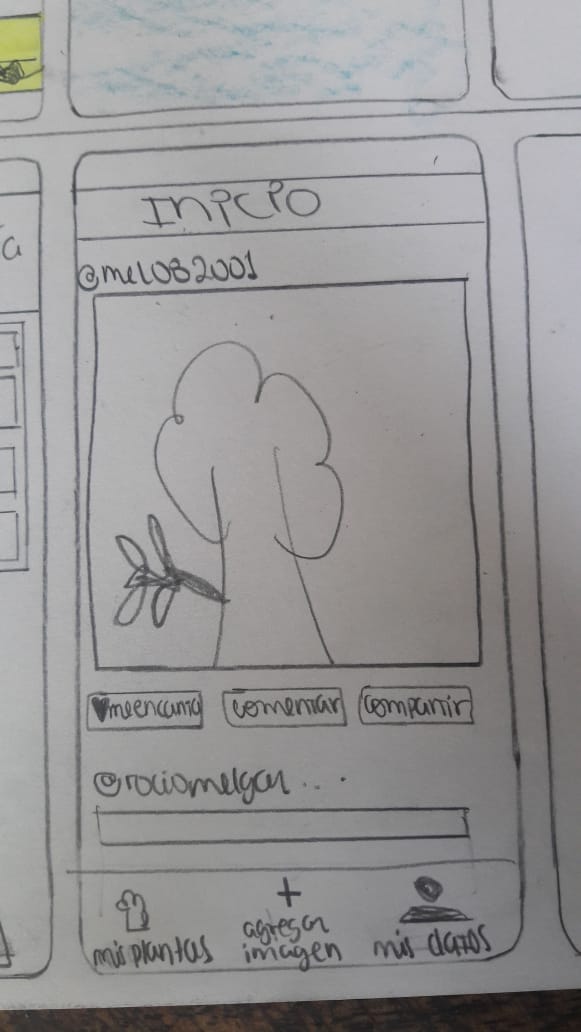 a
Inicio
@mel082001
♥meencanta
comentar
compartir
@rociomelgar...
mis plantas
+
agregar
imagen
mis datos